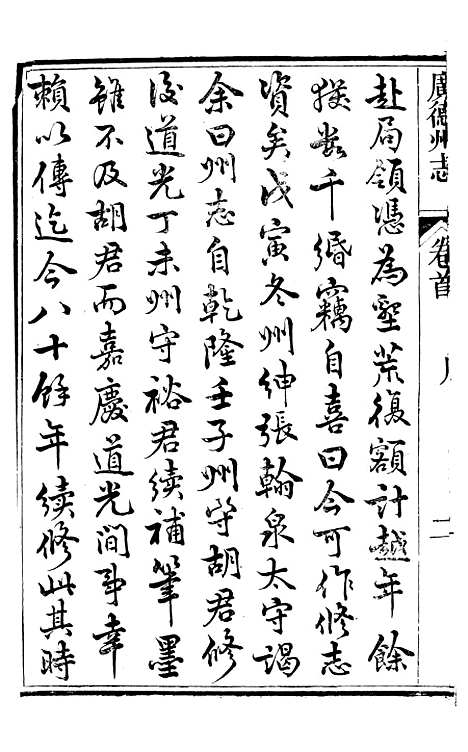 廣德州志
卷首
二
赴局領憑為墾荒復額計越年餘
獲數千緡竊自喜曰今可作修志
資矣戊寅冬州紳張翰泉太守謁
余曰州志自乾隆壬子州守胡君修
後道光丁未州守裕君續補筆墨
雖不及胡君而嘉慶道光間事幸
賴以傳迄今八十餘年續修此其時